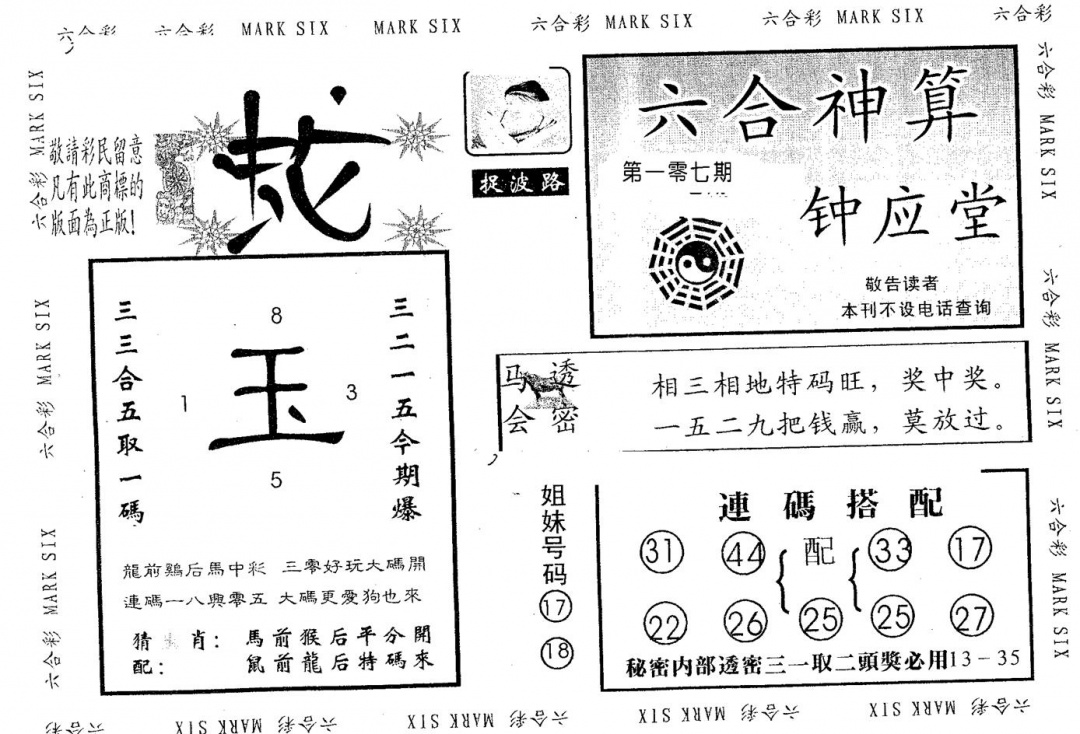 六合彩 六合彩 MARK SIX MARK SIX 六合彩 MARK SIX 六合彩 MARK SIX 六合彩
六合彩 MARK SIX
六合彩 MARK SIX
六合彩 MARK SIX
敬請彩民留意
凡有此商標的
版面為正版!
捉波路
六合神算
第一零七期
钟应堂
敬告读者
本刊不设电话查询
三三合五取一碼
8
1
玉
3
5
三二一五今期爆
龍前鷄后馬中彩 三零好玩大碼開
連碼一八興零五 大碼更愛狗也來
猜 肖: 馬前猴后平分開
配: 鼠前龍后特碼來
马会
透密
相三相地特码旺,奖中奖。
一五二九把钱赢,莫放过。
姐妹号码
17
18
連碼搭配
31 44 配 33 17
22 26 25 25 27
秘密内部透密三一取二頭獎必用13-35
六合彩 MARK SIX
六合彩 MARK SIX
六合彩 MARK SIX
六合彩 MARK SIX 六合彩 MARK SIX 六合彩 MARK SIX 六合彩 MARK SIX 六合彩